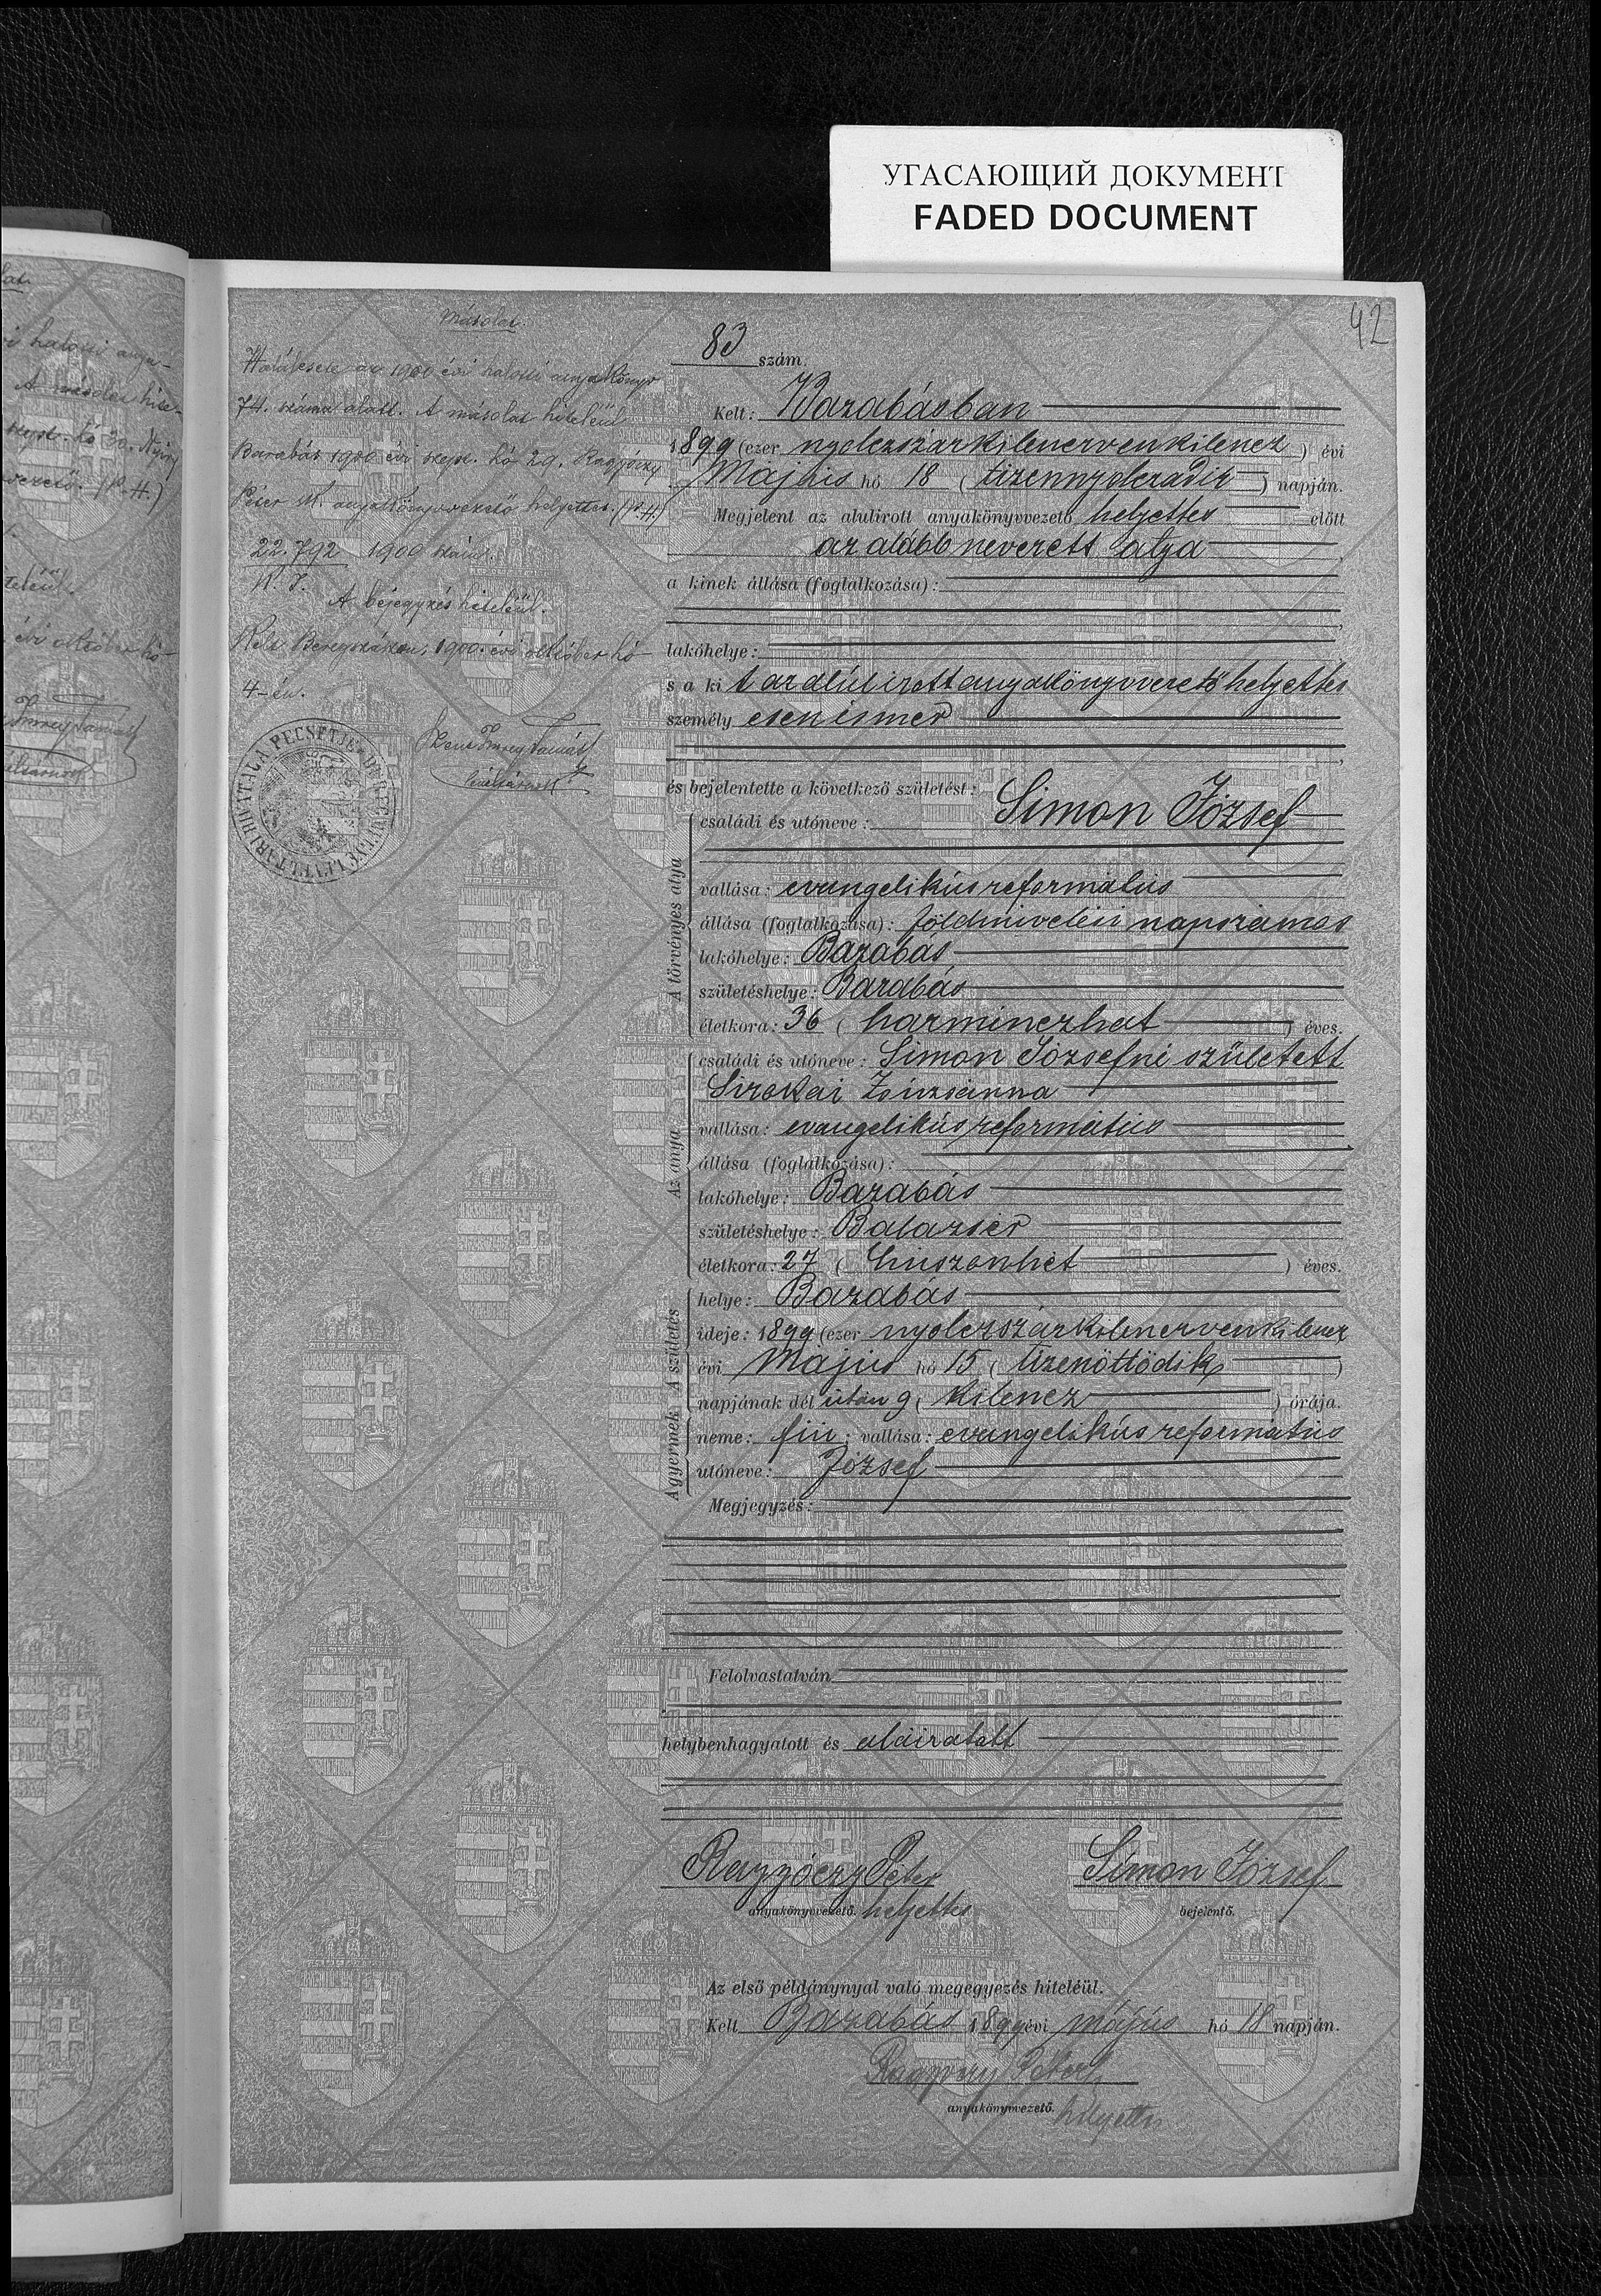 УГАСАЮЩИЙ ДОКУМЕНТ
FADED DOCUMENT
42
Másolat.
Halálesete az 1900 évi halotti anyakönyv
74. száma alatt. A másolat hiteléül
Barabás 1900 évi szept. hó 29. Ragyóczy
Péter h. anyakönyvvezető helyettes. (P.H.)
22.792 1900 szám.
A bejegyzés hiteléül.
Kelt Beregszászon, 1900. évi október hó
4-én.
83 szám.
Kelt: Barabásban
1899 (ezer nyolczszázkilenczvenkilencz) évi
Május hó 18 (tizennyolczadik) napján.
Megjelent az alulirott anyakönyvvezető helyettes előtt
az alább nevezett atya
a kinek állása (foglalkozása):
lakóhelye:
s a kit az alúl irott anyakönyvvezető helyettes
személyesen ismer
és bejelentette a következő születést:
A törvényes atya
családi és utóneve: Simon József
vallása: evangelikús református
állása (foglalkozása): földmivelési napszámos
lakóhelye: Barabás
születéshelye: Barabás
életkora: 36 (harminczhat) éves.
Az anya
családi és utóneve: Simon Józsefné született
Sirokai Zsúzsánna
vallása: evangelikús református
állása (foglalkozása):
lakóhelye: Barabás
születéshelye: Balazsér
életkora: 27 (húszonhét) éves.
A születés
helye: Barabás
ideje: 1899 (ezer nyolczszázkilenczvenkilencz
évi Május hó 15 (tizenöttödik)
napjának dél után 9 (kilencz) órája.
A gyermek
neme: fiú; vallása: evangelikús református
utóneve: József
Megjegyzés:
Felolvastatván
helybenhagyatott és aláiratott
Ragyóczy Péter
anyakönyvvezető. helyettes
Simon József
bejelentő.
Az első példánynyal való megegyezés hiteléül.
Kelt Barabás 1899 évi május hó 18 napján.
Ragyóczy Péter
anyakönyvvezető. helyettes